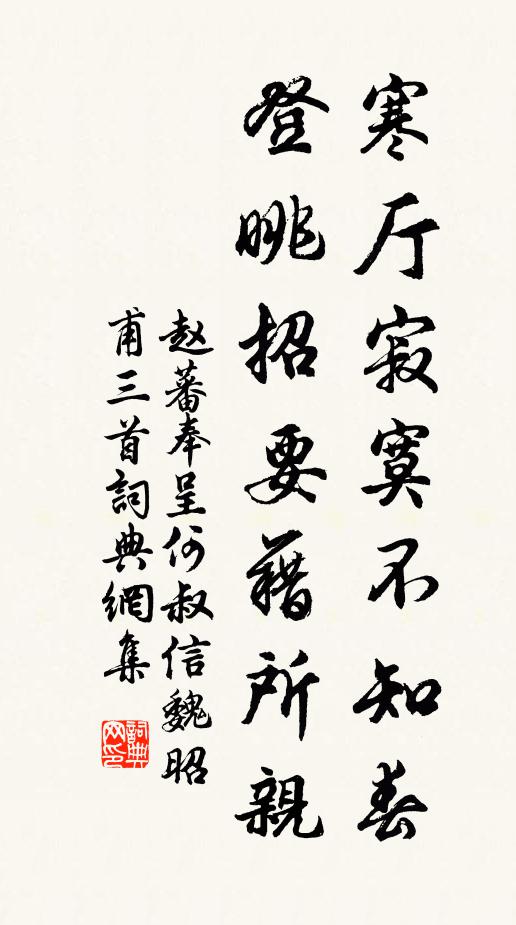 寒厅寂寞不知春
登眺招要藉所親
赵蕃奉呈何叔信魏昭
甫三首詞典網集
詞典网印